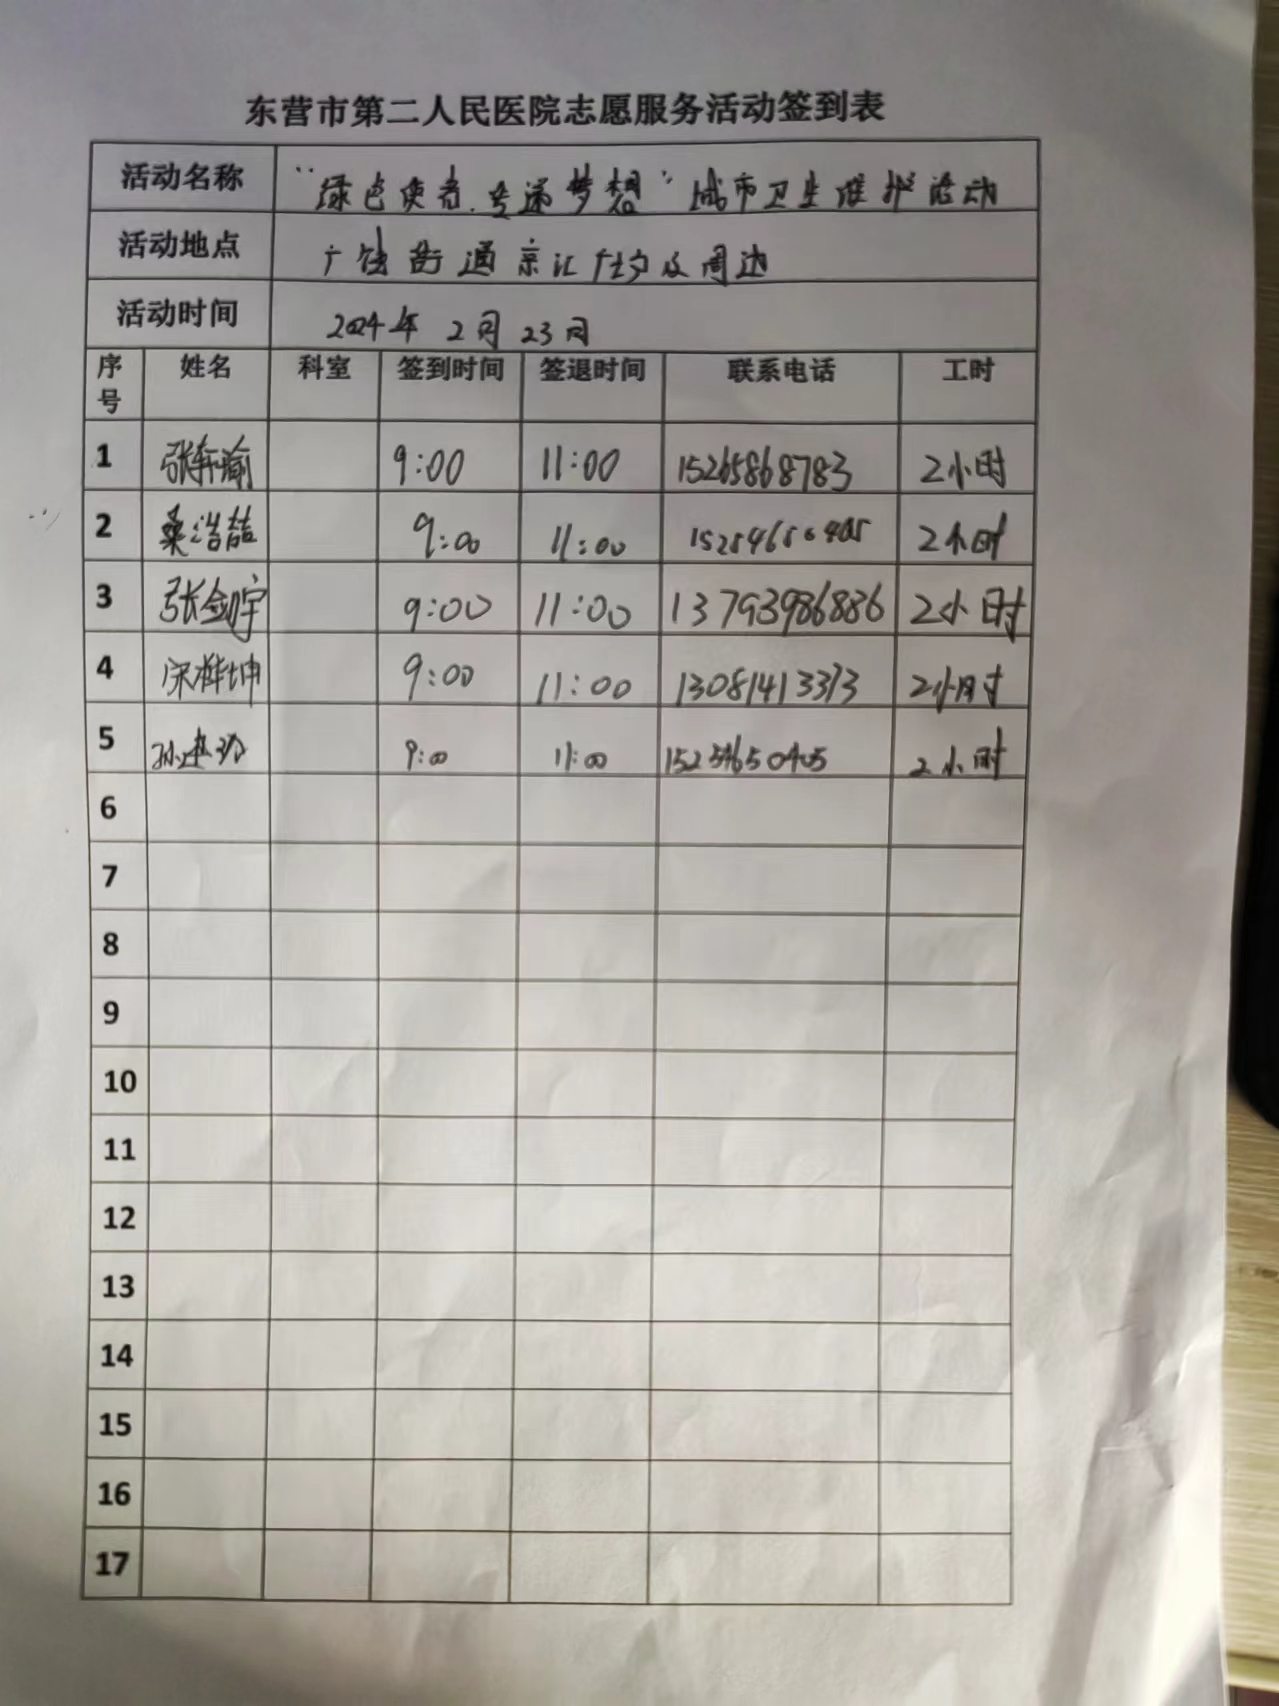 东营市第二人民医院志愿服务活动签到表
活动名称 “绿色使者.传递梦想”城市卫生维护活动
活动地点 广饶街道京汇广场及周边
活动时间 2024年2月23日
序号 姓名 科室 签到时间 签退时间 联系电话 工时
1 张轩瑜 9:00 11:00 15265868783 2小时
2 桑浩喆 9:00 11:00 2小时
3 张剑宇 9:00 11:00 13793986886 2小时
4 宋桦坤 9:00 11:00 13081413313 2小时
5 9:00 11:00 2小时
6
7
8
9
10
11
12
13
14
15
16
17